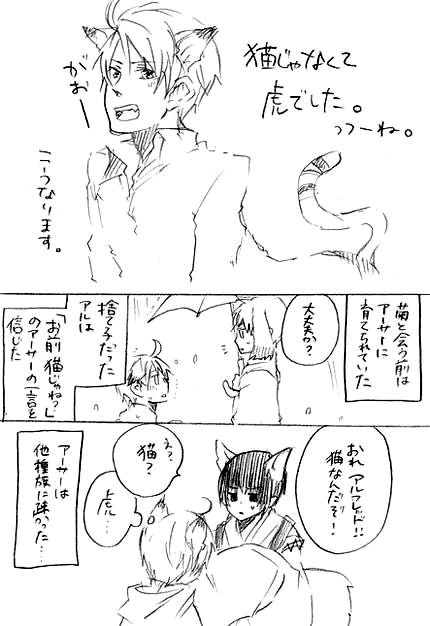 猫じゃなくて
虎でした。
っつーね。
がおー
こうなります。
菊と会う前は
アーサーに
育てられていた
大丈夫か?
捨て子だった
アルは
「お前猫じゃね?」
のアーサーの一言を
信じた
おれ アルフレッド!!
猫なんだぞ!
え?
猫?
虎…
アーサーは
他種族に疎かった…